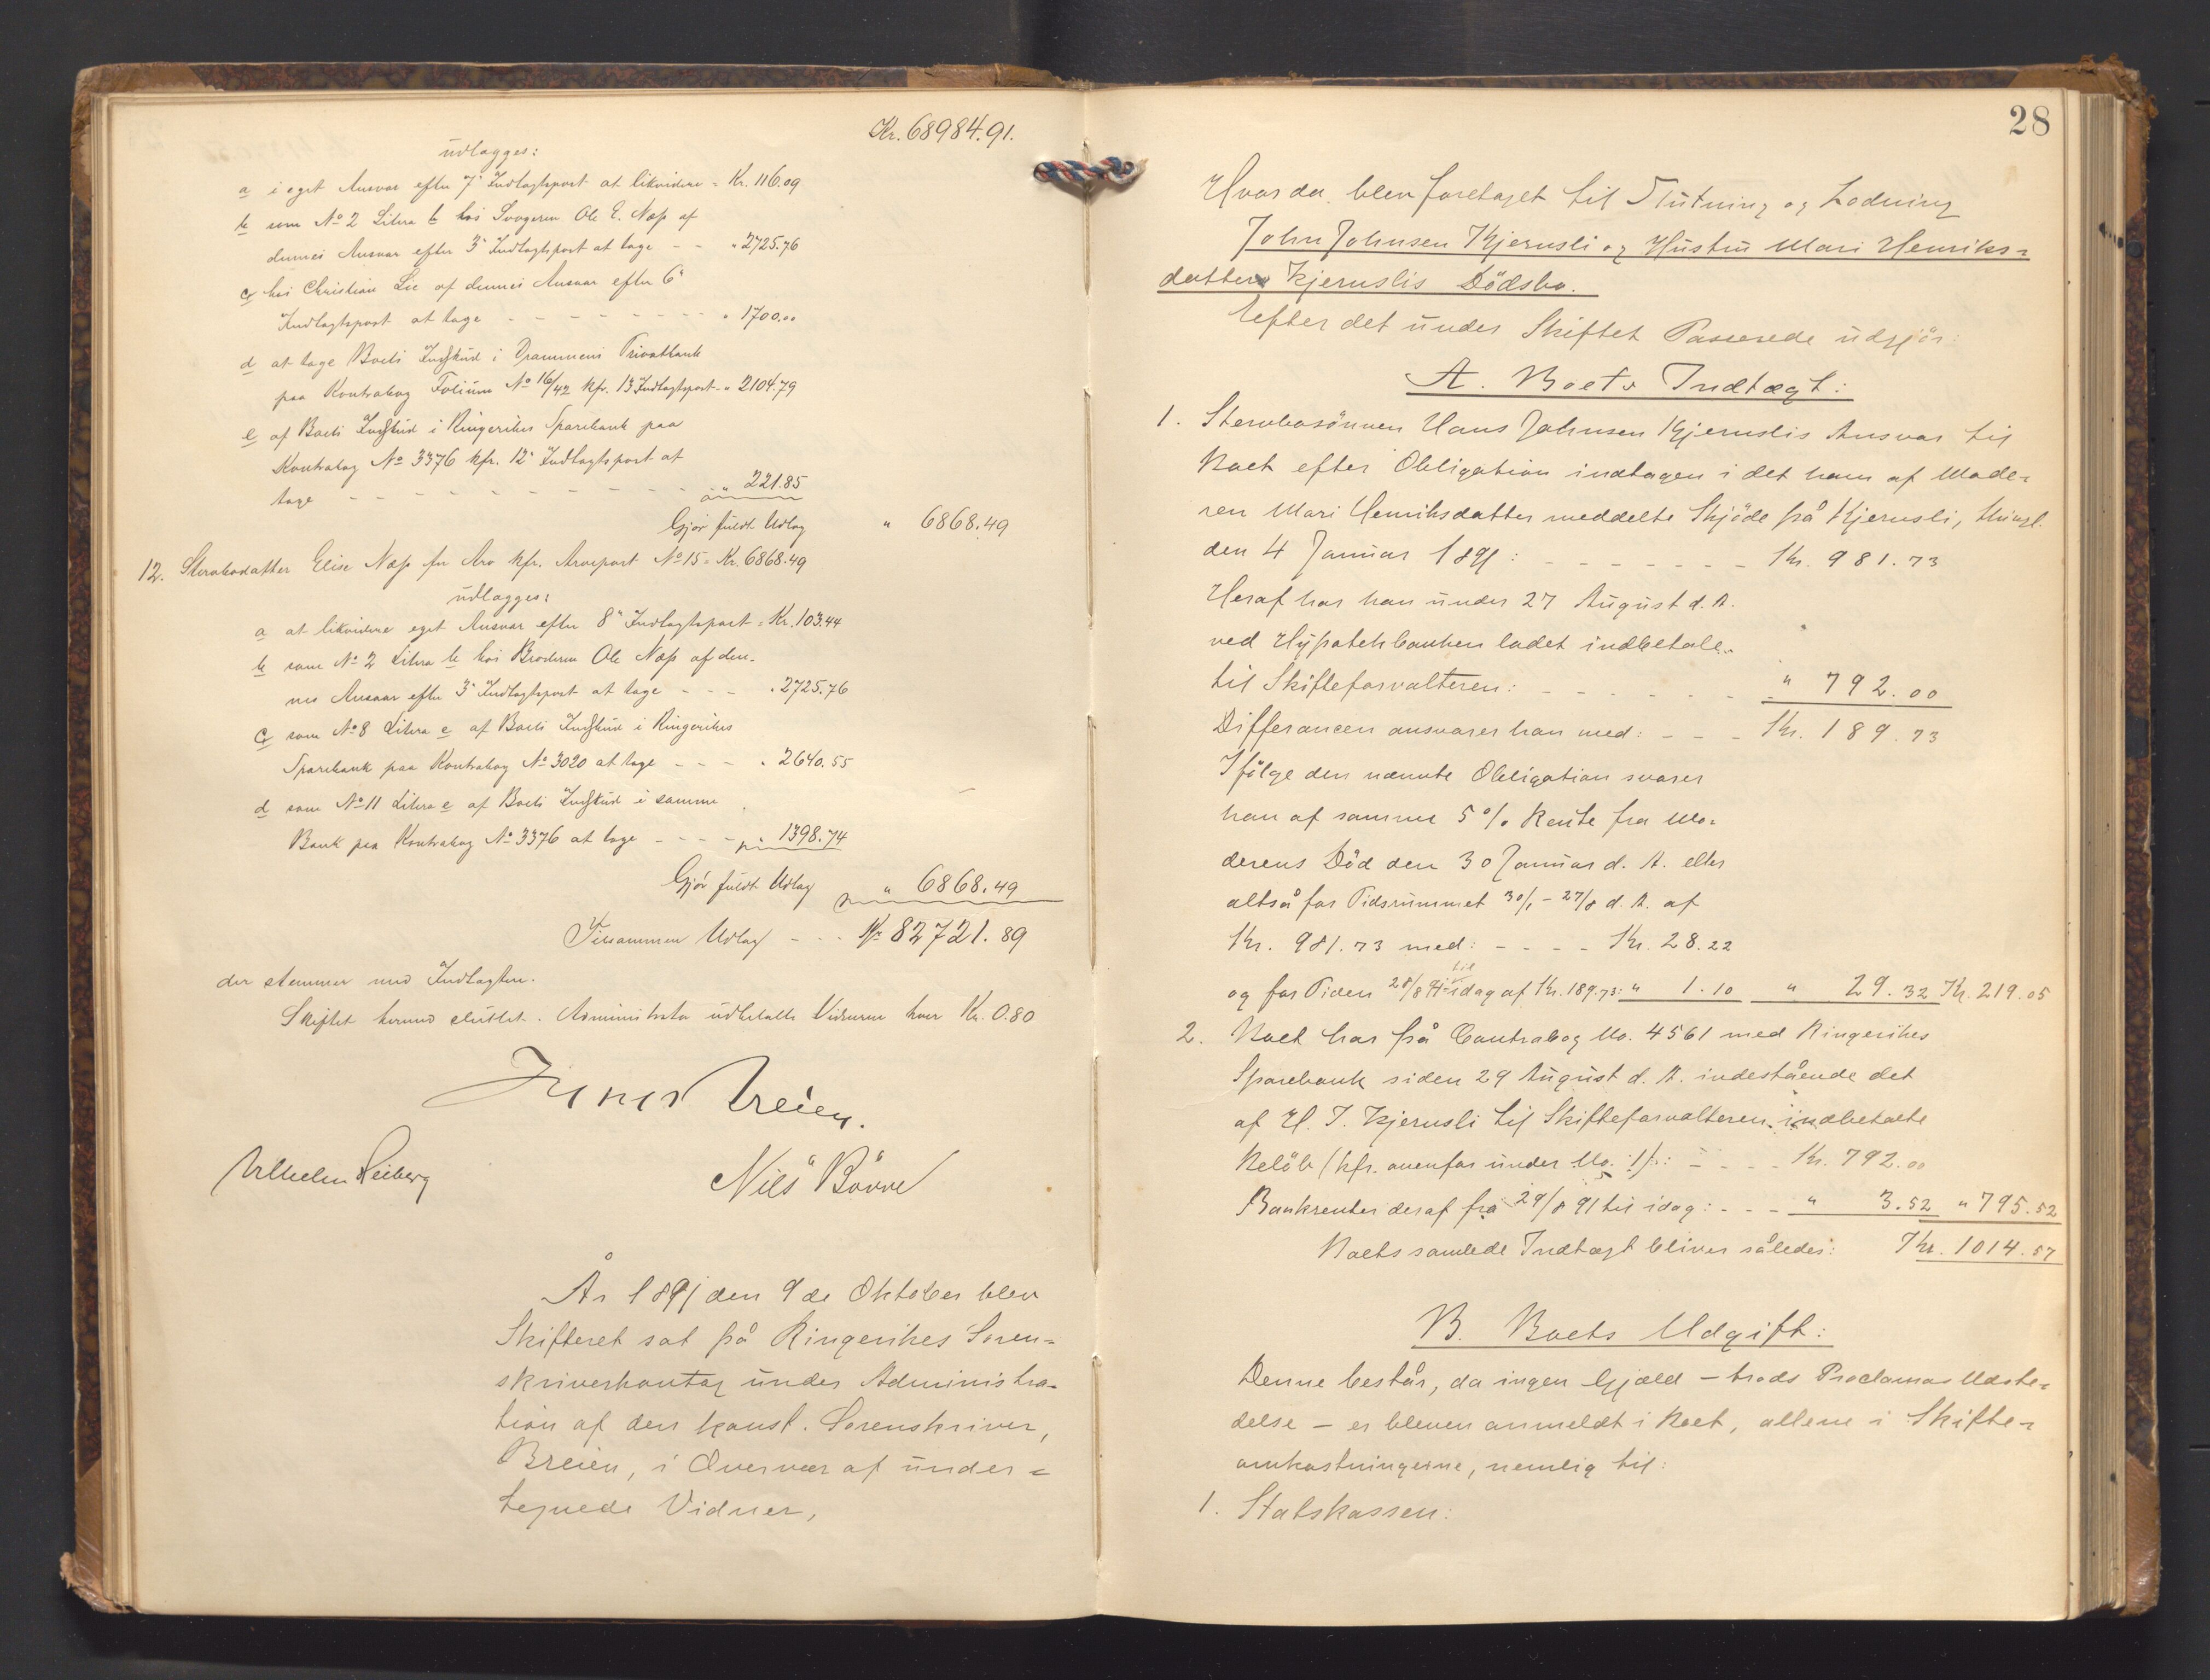 Kr. 68984.91.
udlægges:
a i eget Ansvar efter 7' Indtægtspost at likvidere = Kr. 116.09
b som No 2 Litra b hos Svogeren Ole E. Næss af
dennes Ansvar efter 3' Indtægtspost at tage - - " 2725.76
c hos Christian Lie af dennes Ansvar efter 6'
Indtægtspost at tage - - - - - - - - " 1700.00
d at tage Boets Indskud i Drammens Privatbank
paa Kontrabog Folium No 16/42 kfr. 13 Indtægtspost - " 2104.79
e af Boets Indskud i Ringerikes Sparebank paa
Kontrabog No 3376 kfr. 12' Indtægtspost at
tage - - - - - - - - - - " 221.85
Gjør fuldt Udlæg " 6868.49
12. Stervbodatter Elise Næss for Arv kfr. Arvepost No 15 = Kr. 6868.49
udlægges:
a at likvidere eget Ansvar efter 8' Indtægtspost = Kr. 103.44
b som No 2 Litra b hos Broderen Ole Næss af den-
nes Ansvar efter 3' Indtægtspost at tage - - - " 2725.76
c som No 8 Litra e af Boets Indskud i Ringerikes
Sparebank paa Kontrabog No 3020 at tage - - - " 2640.55
d som No 11 Litra e af Boets Indskud i samme
Bank paa Kontrabog No 3376 at tage - - - - " 1398.74
Gjør fuldt Udlæg " 6868.49
Tilsammen Udlæg - - - Kr 82721.89
der stemmer med Indtægten.
Skiftet hermed sluttet. Administrator udbetalte Vidnerne hver Kr. 0.80
Breien.
Vilhelm Heiberg Nils Børve
År 1891 den 9de Oktober blev
Skifteret sat på Ringerikes Soren-
skriverkontor under Administra-
tion af den konst. Sorenskriver,
Breien, i Overvær af under-
tegnede Vidner,
28
Hvorda blev foretaget til Slutning og Lodning
John Johnsen Kjernsli og Hustru Mari Henriks-
datter Kjernslis Dödsbo.
Efter det under Skiftet Passerede udgjör:
A. Boets Indtægt:
1. Stervbosönnen Hans Johnsen Kjernslis Ansvar til
Boet efter Obligation indtagen i det ham af Mode-
ren Mari Henriksdatter meddelte Skjöde på Kjernsli, thingl.
den 4 Januar 1891: - - - - - - - Kr. 981.73
Heraf har han under 27 August d. A.
ved Hypothekbanken ladet indbetale
til Skifteforvalteren: - - - - - - " 792.00
Differancen ansvarer han med: - - - Kr. 189.73
Ifölge den nævnte Obligation svarer
han af samme 5 % Rente fra Mo-
derens Död den 30 Januar d. A. eller
altså for Tidsrummet 30/1 - 27/8 d. A. af
Kr. 981.73 med: - - - - Kr. 28.22
og for Tiden 28/8 91 til idag af Kr. 189.73: " 1.10 " 29.32 Kr. 219.05
2. Boet har på Contrabog No. 4561 med Ringerikes
Sparebank siden 29 August d. A. indestående det
af H. J. Kjernsli til Skifteforvalteren indbetalte
Belöb (kfr. ovenfor under No. 1): - - - - Kr. 792.00
Bankrenter deraf fra 29/8 91 til idag: - - - " 3.52 " 795.52
Boets samlede Indtægt bliver således: Kr. 1014.57
B. Boets Udgift:
Denne består, da ingen Gjæld – trods Proclamas Udste-
delse – er bleven anmeldt i Boet, allene i Skifte-
omkostningerne, nemlig til:
1. Statskassen: